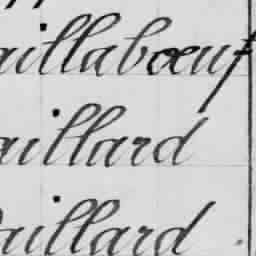 aillabœuf
aillard
aillard